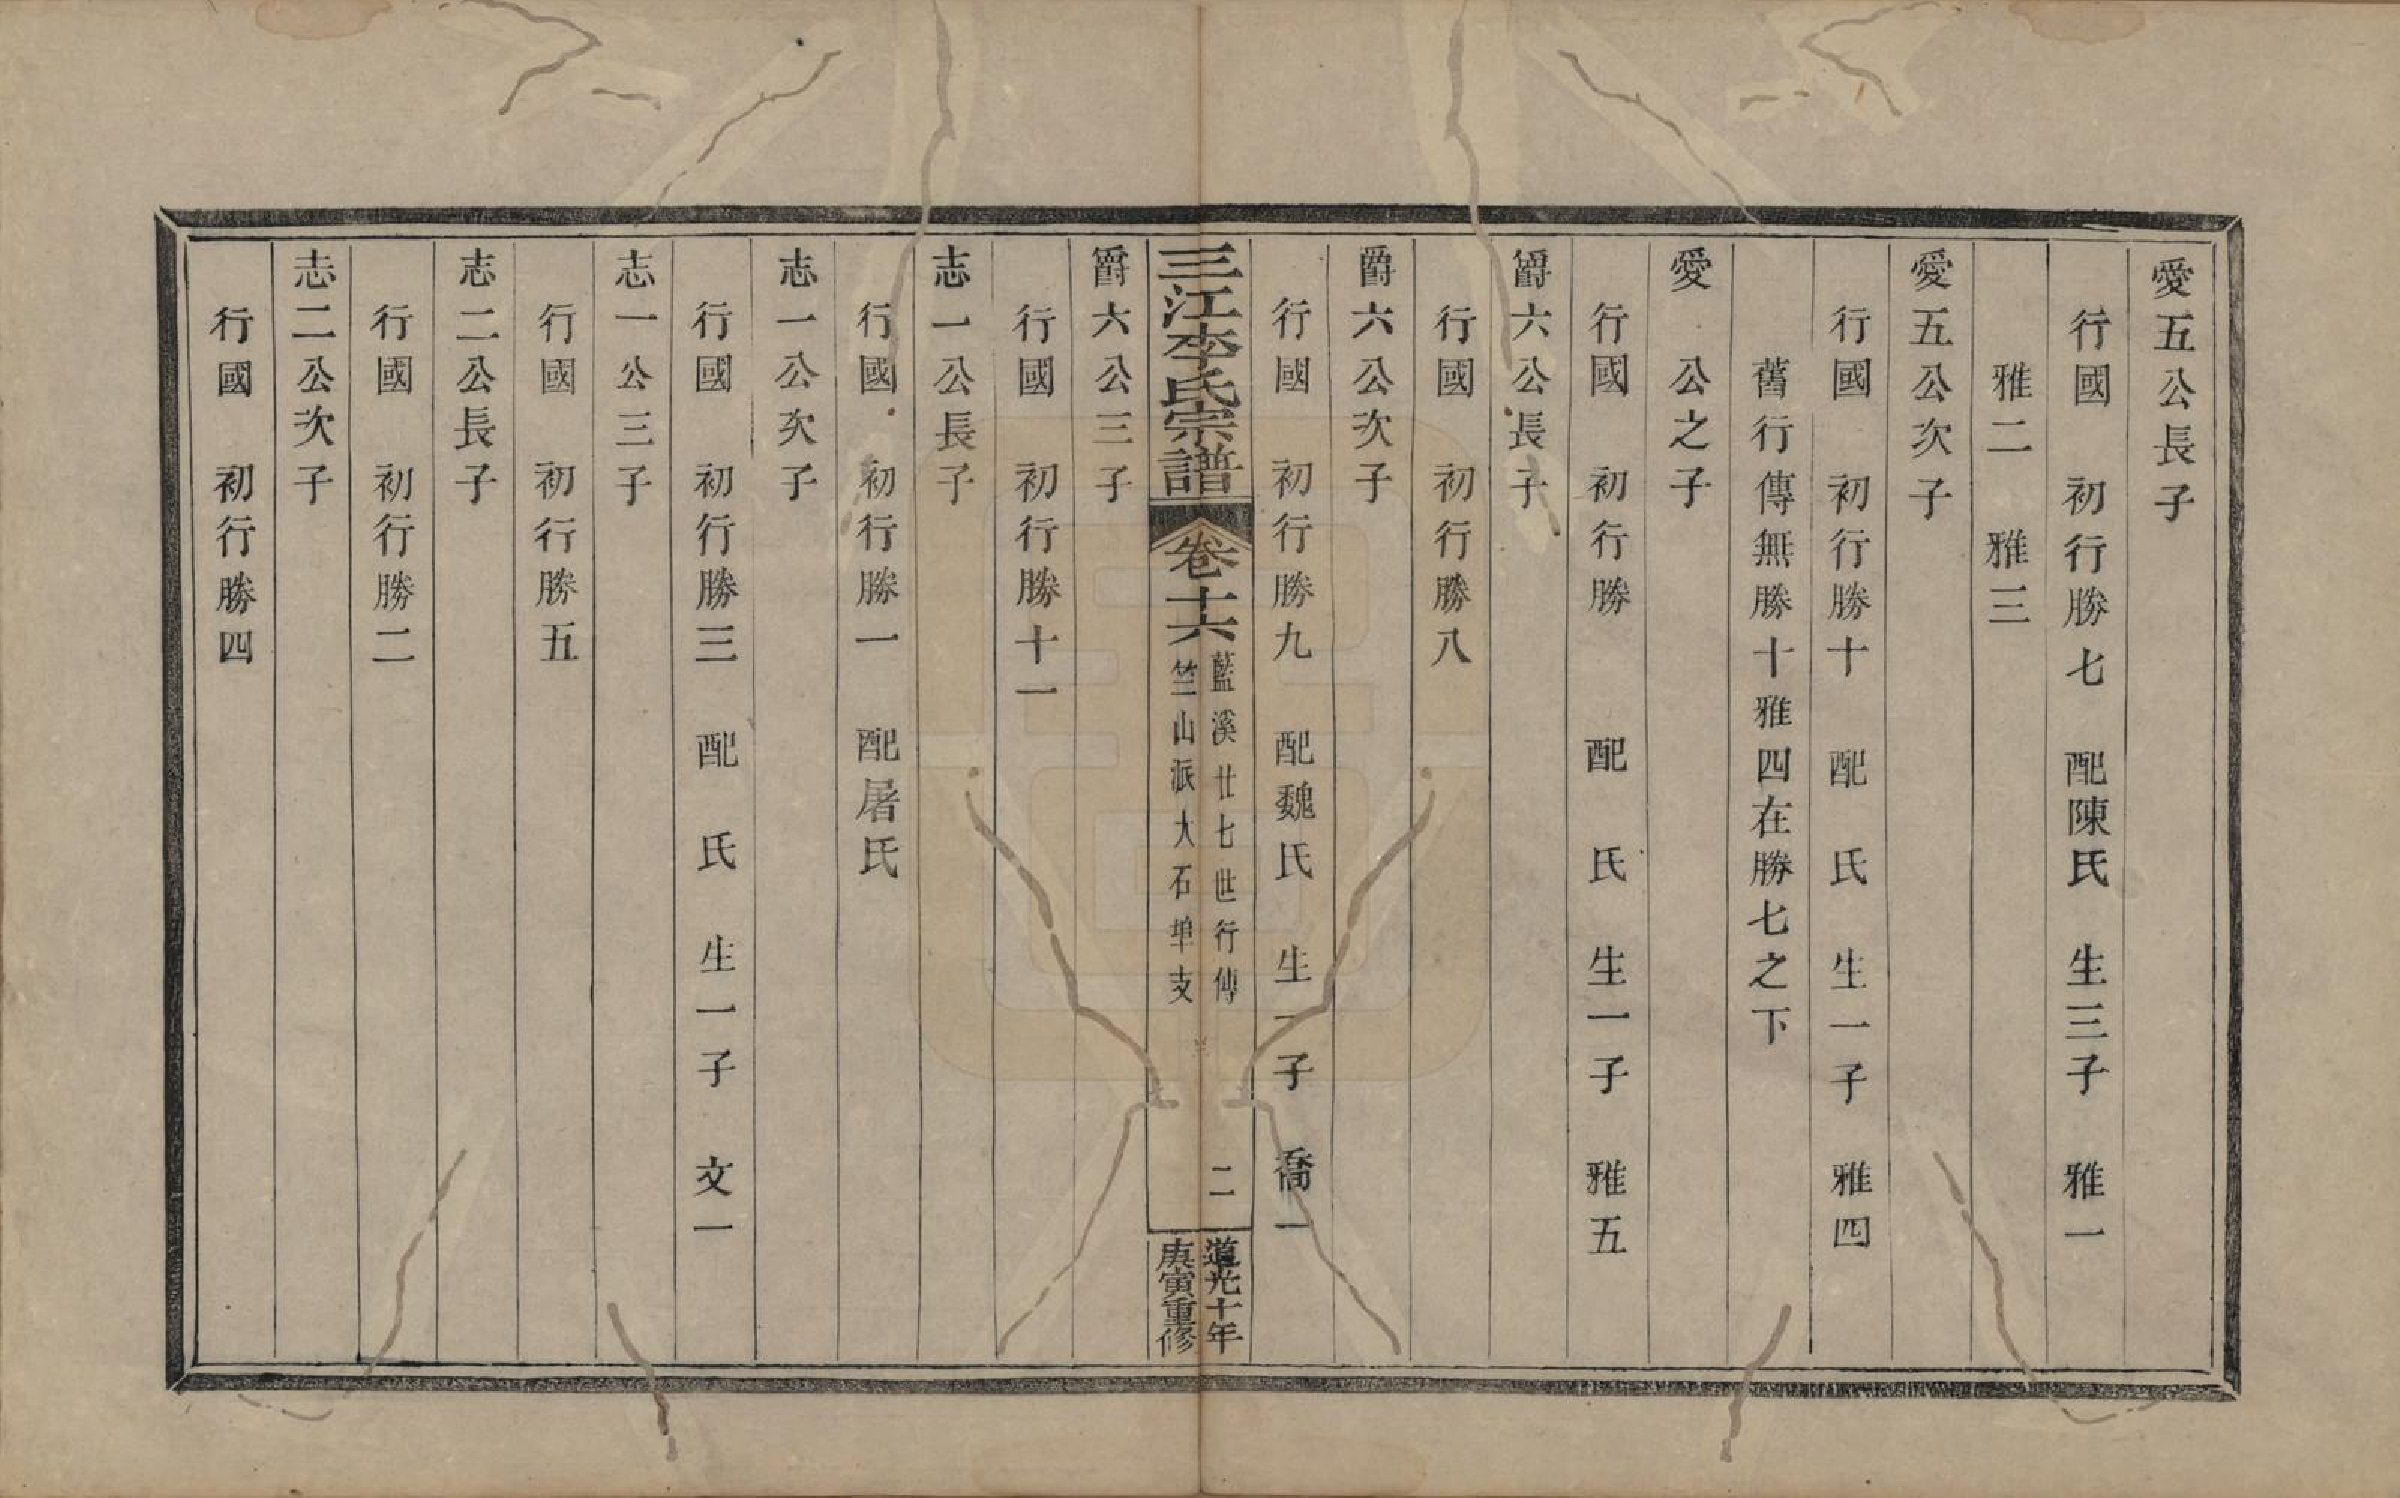 愛五公長子
行國　初行勝七　配陳氏　生三子　雅一
雅二　雅三
愛五公次子
行國　初行勝十　配　氏　生一子　雅四
舊行傳無勝十雅四在勝七之下
愛　公之子
行國　初行勝　　配　氏　生一子　雅五
爵六公長子
行國　初行勝八
爵六公次子
行國　初行勝九　配魏氏　生一子　喬一
三江李氏宗譜　卷十六　藍溪廿七世行傳
竺山派大石埠支
二
道光十年
庚寅重修
爵六公三子
行國　初行勝十一
志一公長子
行國　初行勝一　配屠氏
志一公次子
行國　初行勝三　配　氏　生一子　文一
志一公三子
行國　初行勝五
志二公長子
行國　初行勝二
志二公次子
行國　初行勝四